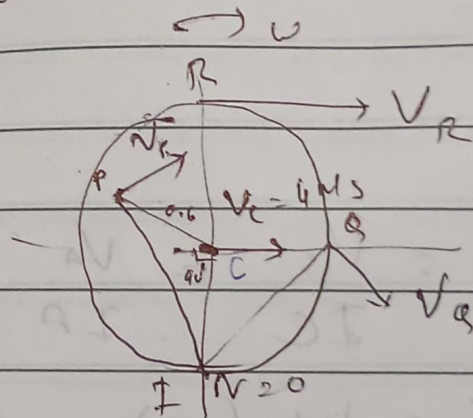 ω
R
V_R
V_P
P
0.6
V_C = 4 M/S
Q
90°
C
V_Q
I V=0